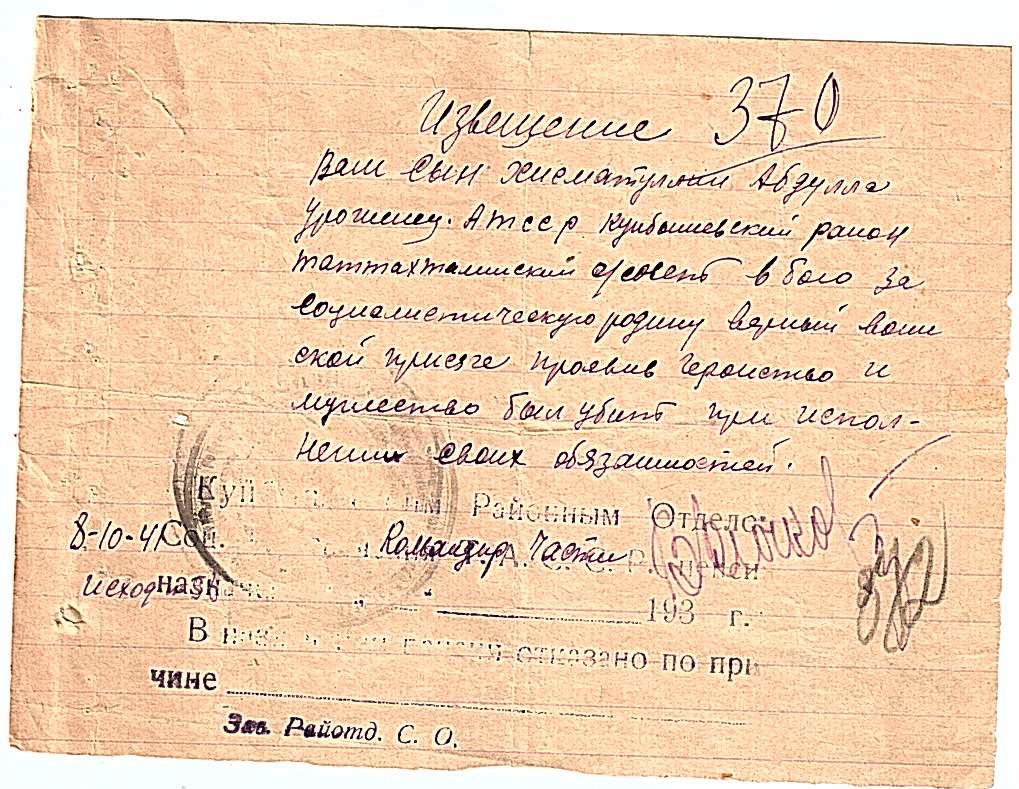 Извещение 370
Ваш Сын Хисматуллин Абдулла
Урожинец. АТССР Куйбышевский раион
таттахталинский с/совент в бою за
социалистическую родину верный воин
ской присяге проявив героиство и
мужество был убит при испол-
нении своих обязанностей.
Районным Отдело
8-10-41 Командир Части
назн
193 г.
В отказано по при
чине
Зав. Райотд. С. О.